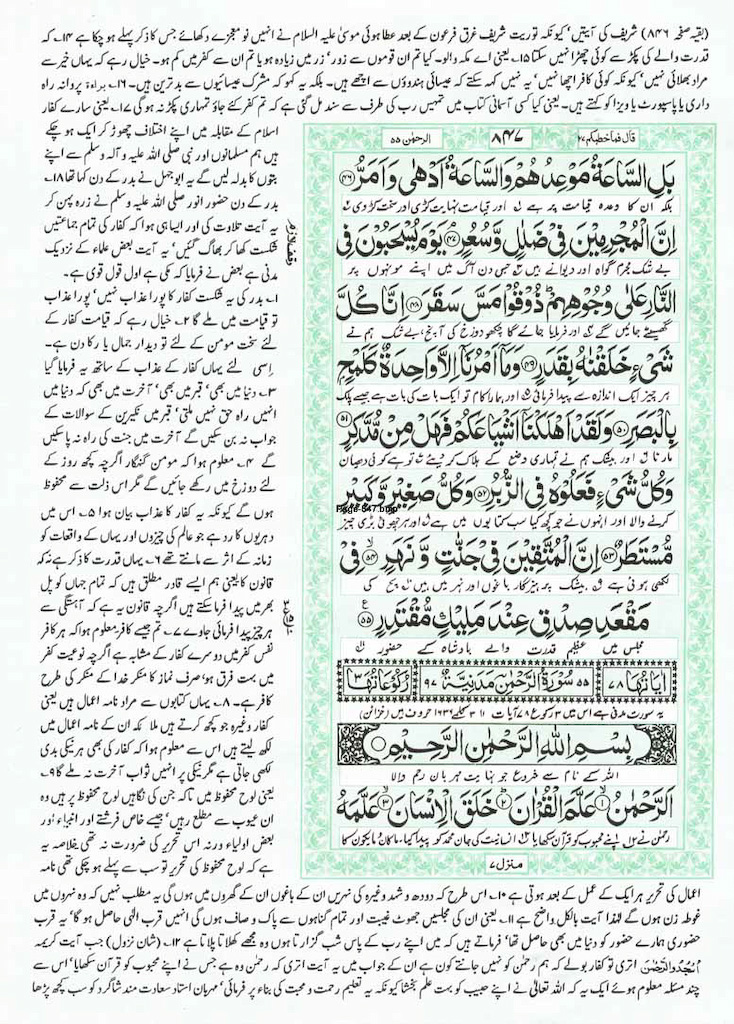 (بقیہ صفحہ ۸۴۶) شریف کی آیتیں' کیونکہ توریت شریف غرق فرعون کے بعد عطا ہوئی موسیٰ علیہ السلام نے انہیں نو معجزے دکھائے جس کا ذکر پہلے ہو چکا ہے ۱۴۔ کہ
قدرت والے کی پکڑ سے کوئی چھڑا نہیں سکتا ۱۵۔ یعنی اے مکہ والو۔ کیا تم ان قوموں سے زور' زر میں زیادہ ہو یا تم ان سے کفر میں کم ہو۔ خیال رہے کہ یہاں خیر سے
مراد بھلائی نہیں' کیونکہ کوئی کافر اچھا نہیں' یہ نہیں کہہ سکتے کہ عیسائی ہندوؤں سے اچھے ہیں۔ بلکہ یہ کہو کہ مشرک عیسائیوں سے بدتر ہیں۔ ۱۶۔ براءۃ پروانہ راہ
داری یا پاسپورٹ یا ویزا کو کہتے ہیں۔ یعنی کیا کسی آسمانی کتاب میں تمہیں رب کی طرف سے سند مل گئی ہے کہ تم کفر کئے جاؤ تمہاری پکڑ نہ ہو گی ۱۷۔ یعنی سارے کفار
اسلام کے مقابلہ میں اپنے اختلاف چھوڑ کر ایک ہو چکے
ہیں ہم مسلمانوں اور نبی صلی اللہ علیہ و آلہ وسلم سے اپنے
بتوں کا بدلہ لیں گے یہ ابوجہل نے بدر کے دن کہا تھا ۱۸۔
بدر کے دن حضور انور صلی اللہ علیہ وسلم نے زرہ پہن کر
یہ آیت تلاوت کی اور ایسا ہی ہوا کہ کفار کی تمام جماعتیں
شکست کھا کر بھاگ گئیں' یہ آیت بعض علماء کے نزدیک
مدنی ہے بعض نے فرمایا کہ مکی ہے اول قول قوی ہے۔
۱۔ بدر کی یہ شکست کفار کا پورا عذاب نہیں' پورا عذاب
تو قیامت میں ملے گا ۲۔ خیال رہے کہ قیامت کفار کے
لئے سخت مومن کے لئے تو دیدار جمال یار کا دن ہے۔
اسی لئے یہاں کفار کے عذاب کے ساتھ یہ فرمایا گیا
۳۔ دنیا میں بھی' قبر میں بھی' آخرت میں بھی کہ دنیا میں
انہیں راہ حق نہیں ملتی' قبر میں نکیرین کے سوالات کے
جواب نہ بن سکیں گے آخرت میں جنت کی راہ نہ پا سکیں
گے ۴۔ معلوم ہوا کہ مومن گنہگار اگرچہ کچھ روز کے
لئے دوزخ میں رکھے جائیں گے مگر اس ذلت سے محفوظ
ہوں گے کیونکہ یہ کفار کا عذاب بیان ہوا ۵۔ اس میں
دہریوں کا رد ہے جو عالم کی چیزوں اور یہاں کے واقعات کو
زمانہ کے اثر سے مانتے تھے ۶۔ یہاں قدرت کا ذکر ہے نہ کہ
قانون کا یعنی ہم ایسے قادر مطلق ہیں کہ تمام جہاں کو پل
بھر میں پیدا فرما سکتے ہیں اگرچہ قانون یہ ہے کہ آہستگی سے
ہر چیز پیدا فرمائی جاوے ۷۔ تم جیسے کافر معلوم ہوا کہ ہر کافر
نفس کفر میں دوسرے کفار کے مشابہ ہے اگرچہ نوعیت کفر
میں بہت فرق ہو' صرف نماز کا منکر خدا کے منکر کی طرح
کافر ہے۔ ۸۔ یہاں کتابوں سے مراد نامہ اعمال ہیں یعنی
کفار وغیرہ جو کچھ کرتے ہیں ملائکہ ان کے نامہ اعمال میں
لکھ لیتے ہیں اس سے معلوم ہوا کہ کفار کی بھی ہر نیکی بدی
لکھی جاتی ہے مگر نیکی پر انہیں ثواب آخرت نہ ملے گا ۹۔
یعنی لوح محفوظ میں تاکہ جن کی نگاہیں لوح محفوظ پر ہیں وہ
ان عیوب سے مطلع رہیں' جیسے خاص فرشتے اور انبیاء اور
بعض اولیاء ورنہ اس تحریر کی ضرورت نہ تھی خلاصہ یہ
ہے کہ لوح محفوظ کی تحریر تو سب سے پہلے ہو چکی تھی نامہ
قال فما خطبکم ۲۷
۸۴۷
الرحمٰن ۵۵
بَلِ السَّاعَةُ مَوْعِدُهُمْ وَالسَّاعَةُ اَدْهٰى وَاَمَرُّ ﴿۴۶﴾
بلکہ ان کا وعدہ قیامت پر ہے اور قیامت نہایت کڑی اور سخت کڑوی
اِنَّ الْمُجْرِمِيْنَ فِيْ ضَلٰلٍ وَّسُعُرٍ ﴿۴۷﴾ يَوْمَ يُسْحَبُوْنَ فِي
بے شک مجرم گمراہ اور دیوانے ہیں جس دن آگ میں اپنے مونہوں پر
النَّارِ عَلٰى وُجُوْهِهِمْ ذُوْقُوْا مَسَّ سَقَرَ ﴿۴۸﴾ اِنَّا كُلَّ
گھسیٹے جائیں گے اور فرمایا جائے گا چکھو دوزخ کی آنچ بے شک ہم نے
شَيْءٍ خَلَقْنٰهُ بِقَدَرٍ ﴿۴۹﴾ وَمَا اَمْرُنَا اِلَّا وَاحِدَةٌ كَلَمْحٍ
ہر چیز ایک اندازہ سے پیدا فرمائی اور ہمارا کام تو ایک بات کی بات ہے جیسے پلک
بِالْبَصَرِ ﴿۵۰﴾ وَلَقَدْ اَهْلَكْنَا اَشْيَاعَكُمْ فَهَلْ مِنْ مُّدَّكِرٍ ﴿۵۱﴾
مارنا اور بیشک ہم نے تمہاری وضع کے ہلاک کر دیئے تو ہے کوئی دھیان
وَكُلُّ شَيْءٍ فَعَلُوْهُ فِي الزُّبُرِ ﴿۵۲﴾ وَكُلُّ صَغِيْرٍ وَّكَبِيْرٍ
Page-847.bmp
کرنے والا اور انہوں نے جو کچھ کیا سب کتابوں میں ہے اور ہر چھوٹی بڑی چیز
مُّسْتَطَرٌ ﴿۵۳﴾ اِنَّ الْمُتَّقِيْنَ فِيْ جَنّٰتٍ وَّنَهَرٍ ﴿۵۴﴾ فِيْ
لکھی ہوئی ہے بیشک پرہیزگار باغوں اور نہر میں ہیں سچ کی
مَقْعَدِ صِدْقٍ عِنْدَ مَلِيْكٍ مُّقْتَدِرٍ ﴿۵۵﴾
مجلس میں عظیم قدرت والے بادشاہ کے حضور
اٰيَاتُهَا ۷۸ ۵۵ سُوْرَةُ الرَّحْمٰنِ مَدَنِيَّةٌ ۹۷ رُكُوْعَاتُهَا ۳
یہ سورت مدنی ہے اس میں ۳ رکوع ۷۸ آیات ۳۵۱ کلمے ۱۶۳۶ حروف ہیں (خزائن)
بِسْمِ اللّٰهِ الرَّحْمٰنِ الرَّحِيْمِ
اللہ کے نام سے شروع جو نہایت مہربان رحم والا
اَلرَّحْمٰنُ ﴿۱﴾ عَلَّمَ الْقُرْاٰنَ ﴿۲﴾ خَلَقَ الْاِنْسَانَ ﴿۳﴾ عَلَّمَهُ
رحمٰن نے اپنے محبوب کو قرآن سکھایا انسانیت کی جان محمد کو پیدا کیا۔ ماکان و مایکون کا
منزل ۷
اعمال کی تحریر ہر ایک کے عمل کے بعد ہوتی ہے ۱۰۔ اس طرح کہ دودھ و شہد وغیرہ کی نہریں ان کے باغوں ان کے گھروں میں ہوں گی یہ مطلب نہیں کہ وہ نہروں میں
غوطہ زن ہوں گے لہٰذا آیت بالکل واضح ہے ۱۱۔ یعنی ان کی مجلسیں جھوٹ غیبت اور تمام گناہوں سے پاک و صاف ہوں گی انہیں قرب الٰہی حاصل ہو گا' یہ قرب
حضوری ہمارے حضور کو دنیا میں بھی حاصل تھا' فرماتے ہیں کہ میں اپنے رب کے پاس شب گزارتا ہوں وہ مجھے کھلاتا پلاتا ہے ۱۲۔ (شان نزول) جب آیت کریمہ
اُسْجُدُوْا لِلرَّحْمٰنِ اتری تو کفار بولے کہ ہم رحمٰن کو نہیں جانتے کون ہے ان کے جواب میں یہ آیت اتری کہ رحمٰن وہ ہے جس نے اپنے محبوب کو قرآن سکھایا' اس سے
چند مسئلہ معلوم ہوئے ایک یہ کہ اللہ تعالیٰ نے اپنے حبیب کو بہت علم بخشا کیونکہ یہ تعلیم رحمت و محبت کی بناء پر فرمائی' مہربان استاد سعادت مند شاگرد کو سب کچھ پڑھا